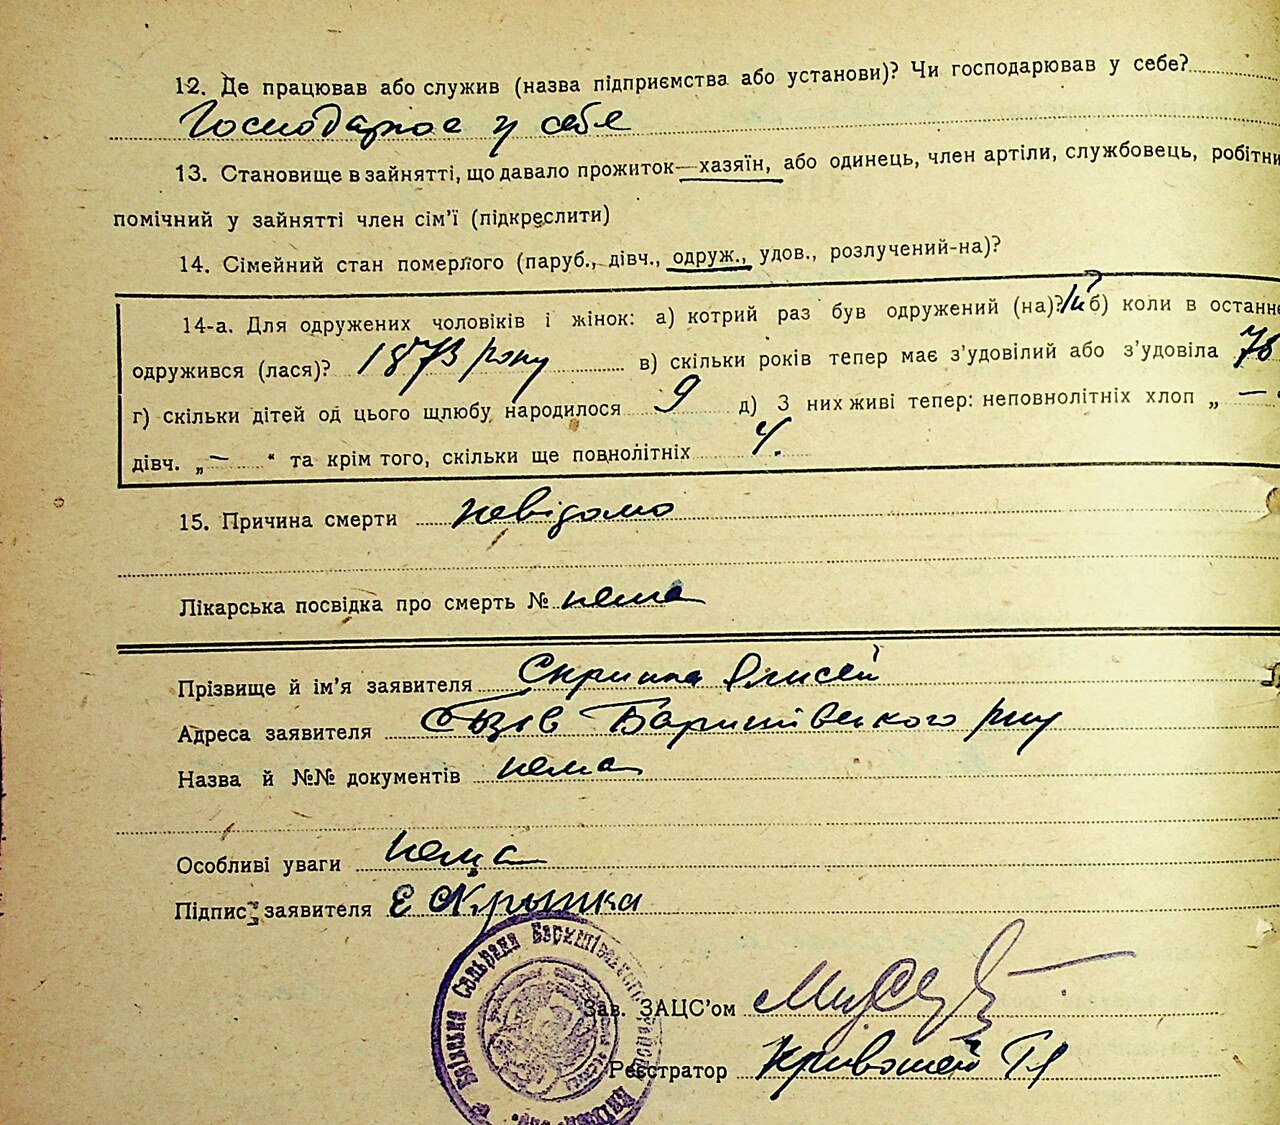 12. Де працював або служив (назва підприємства або установи)? Чи господарював у себе?
Господарює у себе
13. Становище в зайнятті, що давало прожиток—хазяїн, або одинець, член артіли, службовець, робітни
помічний у зайнятті член сім'ї (підкреслити)
14. Сімейний стан померлого (паруб., дівч., одруж., удов., розлучений-на)?
14-а. Для одружених чоловіків і жінок: а) котрий раз був одружений (на)? 1й б) коли в останнє
одружився (лася)? 1873 року в) скільки років тепер має з'удовілий або з'удовіла 78
г) скільки дітей од цього щлюбу народилося 9 д) З них живі тепер: неповнолітніх хлоп „ —
дівч. „ — “ та крім того, скільки ще повнолітніх 4.
15. Причина смерти невідомо
Лікарська посвідка про смерть № нема
Прізвище й ім'я заявителя Скрипка Єлисей
Адреса заявителя Баришівського р-ну
Назва й №№ документів нема
Особливі уваги нема
Підпис заявителя Е Скрыпка
Сельрада Баришівського
Зав. ЗАЦС'ом
Реєстратор Кривошей